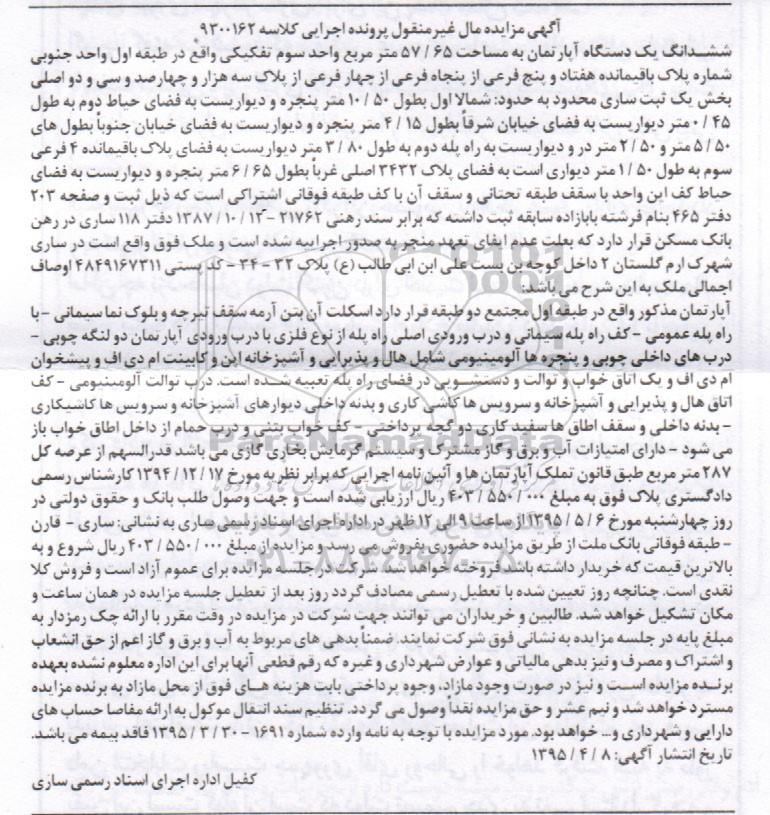 آگهی مزایده مال غیر منقول پرونده اجرایی کلاسه ۹۳۰۰۱۶۲
ششدانگ یک دستگاه آپارتمان به مساحت ۶۵ / ۵۷ متر مربع واحد سوم تفکیکی واقع در طبقه اول واحد جنوبی
شماره پلاک باقیمانده هفتاد و پنج فرعی از پنجاه فرعی از چهار فرعی از پلاک سه هزار و چهارصد و سی و دو اصلی
بخش یک ثبت ساری محدود به حدود: شمالا اول بطول ۵۰ / ۱۰ متر پنجره و دیواریست به فضای حیاط دوم به طول
۴۵ / ۰ متر دیواریست به فضای خیابان شرقاً بطول ۱۵ / ۴ متر پنجره و دیواریست به فضای خیابان جنوباً بطول های
۵۰ / ۵ متر و ۵۰ / ۲ متر در و دیواریست به راه پله دوم به طول ۸۰ / ۳ متر دیواریست به فضای پلاک باقیمانده ۴ فرعی
سوم به طول ۵۰ / ۱ متر دیواری است به فضای پلاک ۳۴۳۲ اصلی غرباً بطول ۶۵ / ۶ متر پنجره و دیواریست به فضای
حیاط کف این واحد با سقف طبقه تحتانی و سقف آن با کف طبقه فوقانی اشتراکی است که ذیل ثبت و صفحه ۲۰۳
دفتر ۴۶۵ بنام فرشته بابازاده سابقه ثبت داشته که برابر سند رهنی ۲۱۷۶۲ - ۱۳ / ۱۰ / ۱۳۸۷ دفتر ۱۱۸ ساری در رهن
بانک مسکن قرار دارد که بعلت عدم ایفای تعهد منجر به صدور اجراییه شده است و ملک فوق واقع است در ساری
شهرک ارم گلستان ۲ داخل کوچه بن بست علی ابن ابی طالب (ع) پلاک ۳۲ - ۳۴ - کد پستی ۴۸۴۹۱۶۷۳۱۱ اوصاف
اجمالی ملک به این شرح می باشد:
آپارتمان مذکور واقع در طبقه اول مجتمع دو طبقه قرار دارد اسکلت آن بتن آرمه سقف تیرچه و بلوک نما سیمانی - با
راه پله عمومی - کف راه پله سیمانی و درب ورودی اصلی راه پله از نوع فلزی با درب ورودی آپارتمان دو لنگه چوبی -
درب های داخلی چوبی و پنجره ها آلومینیومی شامل هال و پذیرایی و آشپزخانه اپن و کابینت ام دی اف و پیشخوان
ام دی اف و یک اتاق خواب و توالت و دستشویی در فضای راه پله تعبیه شده است. درب توالت آلومینیومی - کف
اتاق هال و پذیرایی و آشپزخانه و سرویس ها کاشی کاری و بدنه داخلی دیوارهای آشپزخانه و سرویس ها کاشیکاری
- بدنه داخلی و سقف اطاق ها سفید کاری دو گچه پرداختی - کف خواب بتنی و درب حمام از داخل اطاق خواب باز
می شود - دارای امتیازات آب و برق و گاز مشترک و سیستم گرمایش بخاری گازی می باشد قدرالسهم از عرصه کل
۲۸۷ متر مربع طبق قانون تملک آپارتمان ها و آئین نامه اجرایی که برابر نظریه مورخ ۱۷ / ۱۲ / ۱۳۹۴ کارشناس رسمی
دادگستری پلاک فوق به مبلغ ۰۰۰ / ۵۵۰ / ۴۰۳ ریال ارزیابی شده است و جهت وصول طلب بانک و حقوق دولتی در
روز چهارشنبه مورخ ۶ / ۵ / ۱۳۹۵ از ساعت ۹ الی ۱۲ ظهر در اداره اجرای اسناد رسمی ساری به نشانی: ساری - قارن
- طبقه فوقانی بانک ملت از طریق مزایده حضوری بفروش می رسد و مزایده از مبلغ ۰۰۰ / ۵۵۰ / ۴۰۳ ریال شروع و به
بالاترین قیمت که خریدار داشته باشد فروخته خواهد شد. شرکت در جلسه مزایده برای عموم آزاد است و فروش کلا
نقدی است. چنانچه روز تعیین شده با تعطیل رسمی مصادف گردد روز بعد از تعطیل جلسه مزایده در همان ساعت و
مکان تشکیل خواهد شد. طالبین و خریداران می توانند جهت شرکت در مزایده در وقت مقرر با ارائه چک رمزدار به
مبلغ پایه در جلسه مزایده به نشانی فوق شرکت نمایند. ضمناً بدهی های مربوط به آب و برق و گاز اعم از حق انشعاب
و اشتراک و مصرف و نیز بدهی مالیاتی و عوارض شهرداری و غیره که رقم قطعی آنها برای این اداره معلوم نشده بعهده
برنده مزایده است و نیز در صورت وجود مازاد، وجوه پرداختی بابت هزینه های فوق از محل مازاد به برنده مزایده
مسترد خواهد شد و نیم عشر و حق مزایده نقداً وصول می گردد. تنظیم سند انتقال موکول به ارائه مفاصا حساب های
دارایی و شهرداری و... خواهد بود. مورد مزایده با توجه به نامه وارده شماره ۱۶۹۱ - ۳۰ / ۳ / ۱۳۹۵ فاقد بیمه می باشد.
تاریخ انتشار آگهی: ۸ / ۴ / ۱۳۹۵
کفیل اداره اجرای اسناد رسمی ساری
ParsNamadData